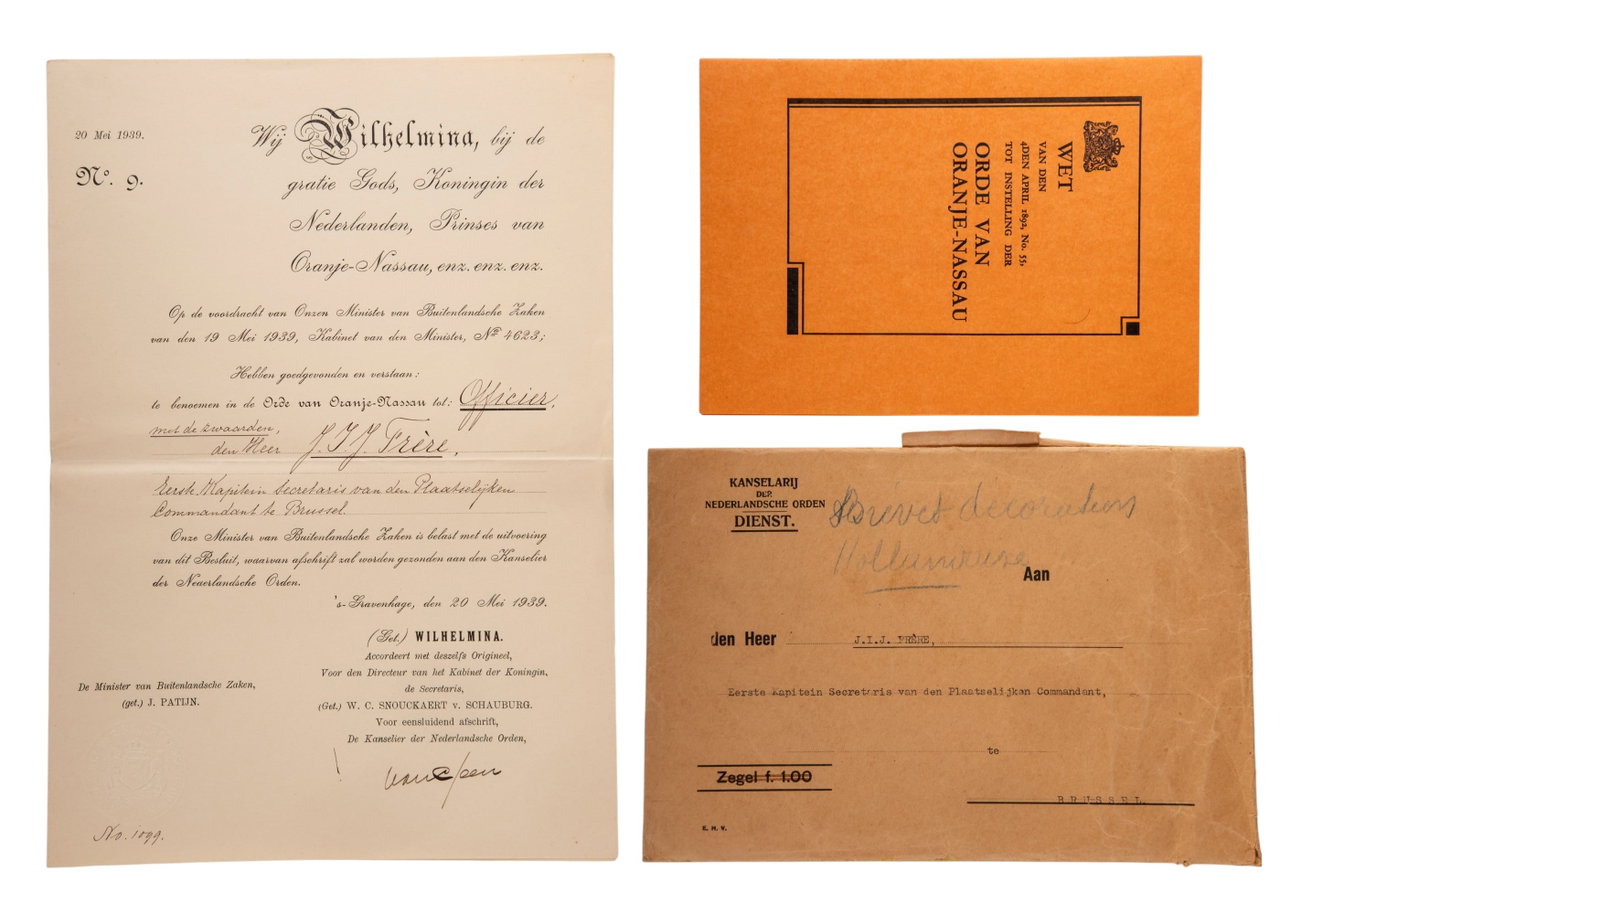 20 Mei 1939.
Nº. 9.
Wij Wilhelmina, bij de
gratie Gods, Koningin der
Nederlanden, Prinses van
Oranje-Nassau, enz. enz. enz.
Op de voordracht van Onzen Minister van Buitenlandsche Zaken
van den 19 Mei 1939, Kabinet van den Minister, Nº 4623;
Hebben goedgevonden en verstaan:
te benoemen in de Orde van Oranje-Nassau tot: Officier,
met de zwaarden,
den Heer J.I.J. Frère,
Eerste Kapitein Secretaris van den Plaatselijken
Commandant te Brussel.
Onze Minister van Buitenlandsche Zaken is belast met de uitvoering
van dit Besluit, waarvan afschrift zal worden gezonden aan den Kanselier
der Nederlandsche Orden.
's-Gravenhage, den 20 Mei 1939.
(Get.) WILHELMINA.
Accordeert met deszelfs Origineel,
Voor den Directeur van het Kabinet der Koningin,
de Secretaris,
(Get.) W. C. SNOUCKAERT v. SCHAUBURG.
Voor eensluidend afschrift,
De Kanselier der Nederlandsche Orden,
De Minister van Buitenlandsche Zaken,
(get.) J. PATIJN.
No. 1099.
WET
VAN DEN
4DEN APRIL 1892, No. 55,
TOT INSTELLING DER
ORDE VAN
ORANJE-NASSAU
KANSELARIJ
DER
NEDERLANDSCHE ORDEN
DIENST.
Brevet decorations
Hollandaise
Aan
den Heer J.I.J. FRÈRE,
Eerste Kapitein Secretaris van den Plaatselijken Commandant,
te
Zegel f. 1.00
BRUSSEL.
E. H. V.